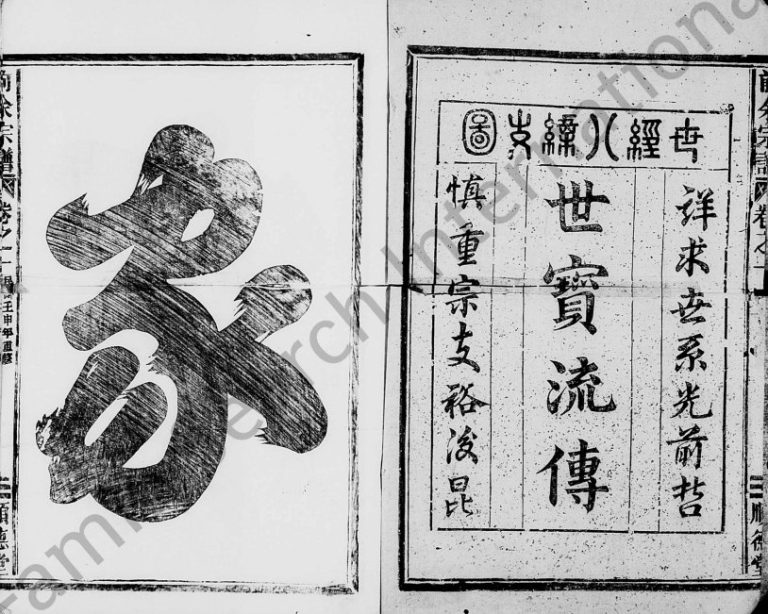 世經人緯支圖
詳求世系光前哲
世寶流傳
慎重宗支裕後昆
前余宗譜
卷之一
順德堂
前余宗譜
卷之一
壬申年重修
順德堂
FamilySearch International